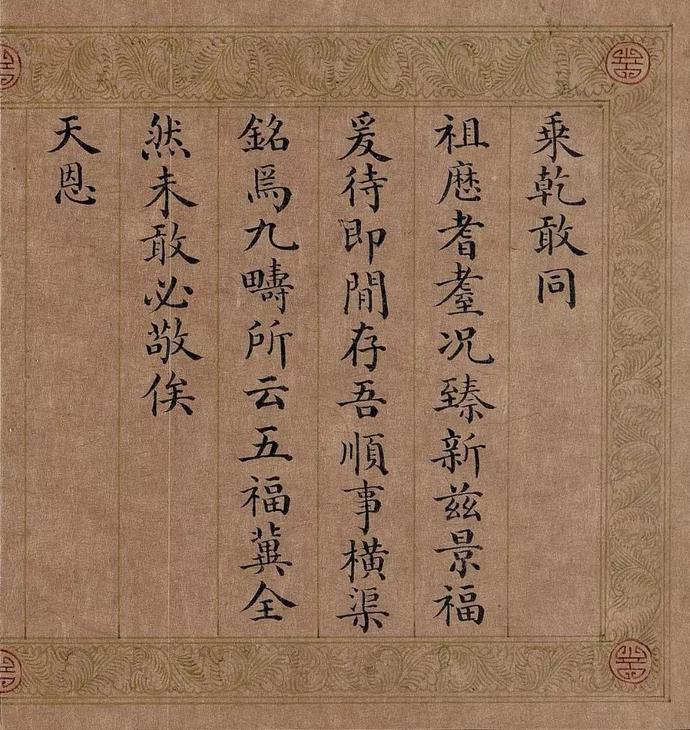 乘乾敢同
祖厯耆耋況臻新兹景福
爰待即閒存吾順事橫渠
銘焉九疇所云五福冀全
然未敢必敬俟
天恩